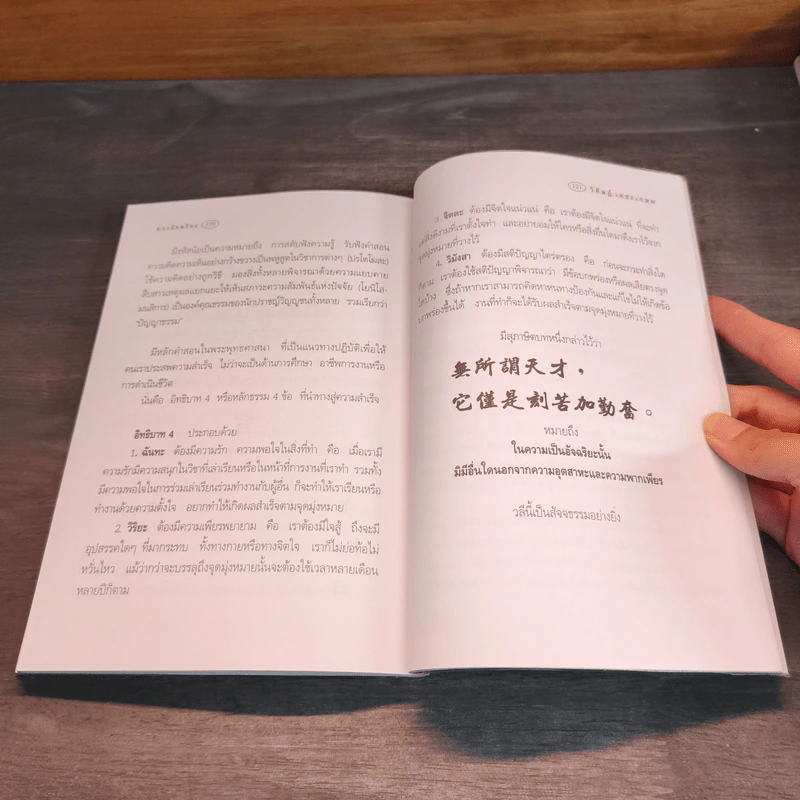 130
มีรหัสนัยเป็นความหมายถึง การสดับฟังความรู้ รับฟังคำสอน
ความคิดความเห็นอย่างกว้างขวางเป็นพหูสูตในวิชาการต่างๆ (ปรโตโฆสะ)
ใช้ความคิดอย่างถูกวิธี มองสิ่งทั้งหลายพิจารณาด้วยความแยบคาย
สืบสาวเหตุผลแยกแยะให้เห็นสภาวะความสัมพันธ์แห่งปัจจัย (โยนิโส-
มนสิการ) เป็นองค์คุณธรรมของนักปราชญ์วิญญูชนทั้งหลาย รวมเรียกว่า
“ปัญญาธรรม”
มีหลักคำสอนในพระพุทธศาสนา ที่เป็นแนวทางปฏิบัติเพื่อให้
คนเราประสพความสำเร็จ ไม่ว่าจะเป็นด้านการศึกษา อาชีพการงานหรือ
การดำเนินชีวิต
นั่นคือ อิทธิบาท 4 หรือหลักธรรม 4 ข้อ ที่นำทางสู่ความสำเร็จ
อิทธิบาท 4 ประกอบด้วย
1. ฉันทะ ต้องมีความรัก ความพอใจในสิ่งที่ทำ คือ เมื่อเรามี
ความรักมีความสนุกในวิชาที่เล่าเรียนหรือในหน้าที่การงานที่เราทำ รวมทั้ง
มีความพอใจในการร่วมเล่าเรียนร่วมทำงานกับผู้อื่น ก็จะทำให้เราเรียนหรือ
ทำงานด้วยความตั้งใจ อยากทำให้เกิดผลสำเร็จตามจุดมุ่งหมาย
2. วิริยะ ต้องมีความเพียรพยายาม คือ เราต้องมีใจสู้ ถึงจะมี
อุปสรรคใดๆ ที่มากระทบ ทั้งทางกายหรือทางจิตใจ เราก็ไม่ย่อท้อไม่
หวั่นไหว แม้ว่ากว่าจะบรรลุถึงจุดมุ่งหมายนั้นจะต้องใช้เวลาหลายเดือน
หลายปีก็ตาม
131
3 จิตตะ ต้องมีจิตใจแน่วแน่ คือ เราต้องมีจิตใจแน่วแน่ ที่จะทำ
แต่สิ่งดีงามที่เราตั้งใจทำ และอย่ายอมให้ใครหรือสิ่งอื่นใดมาดึงเราไว้จาก
จุดมุ่งหมายที่วางไว้
4. วิมังสา ต้องมีสติปัญญาไตร่ตรอง คือ ก่อนจะกระทำสิ่งใด
ก็ตาม เราต้องใช้สติปัญญาพิจารณาว่า มีข้อบกพร่องหรือผลเสียตรงจุด
ใดบ้าง ซึ่งถ้าหากเราสามารถคิดหาหนทางป้องกันและแก้ไขไม่ให้เกิดข้อ
บกพร่องขึ้นได้ งานที่ทำก็จะได้รับผลสำเร็จตามจุดมุ่งหมายที่วางไว้
มีสุภาษิตบทหนึ่งกล่าวไว้ว่า
無所謂天才，
它僅是刻苦加勤奮。
หมายถึง
ในความเป็นอัจฉริยะนั้น
มิมีอื่นใดนอกจากความอุตสาหะและความพากเพียร
วลีนี้เป็นสัจจธรรมอย่างยิ่ง